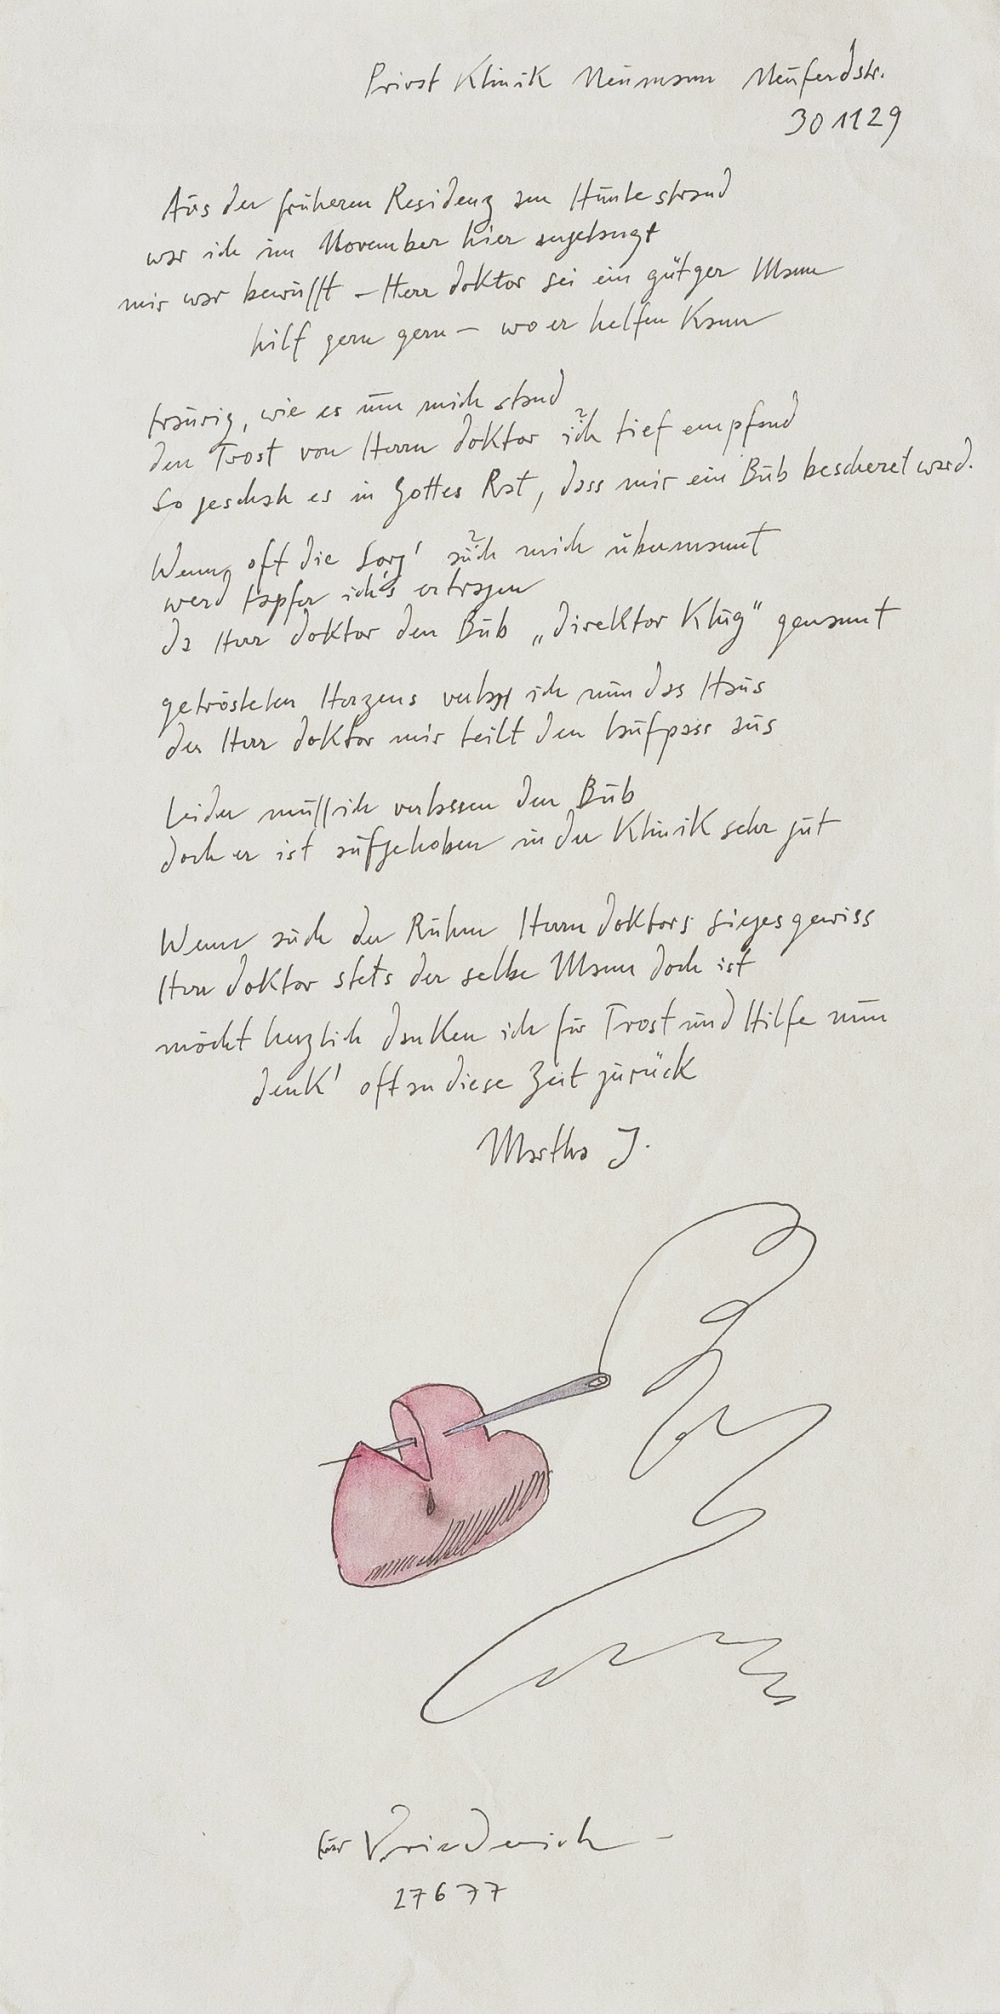 Privat Klinik Neumann Neuferdstr.
30 11 29
Aus der früheren Residenz am Huntestrand
war ich im November hier angelangt
mir war bewußt – Herr doktor sei ein gütger Mann
hilf gern gern – wo er helfen Kann
traurig, wie es um mich stand
den Trost von Herrn doktor ich tief empfand
So geschah es in Gottes Rat, dass mir ein Bub bescheret ward.
Wenn oft die Sorg' auch mich übermannt
werd tapfer ich's ertragen
da Herr doktor den Bub „direktor Klug" genannt
getrösteten Herzens verlass ich nun das Haus
der Herr doktor mir teilt den laufpass aus
leider muß ich verlassen den Bub
doch er ist aufgehoben in der Klinik sehr gut
Wenn auch der Ruhm Herrn doktors siegesgewiss
Herr doktor stets der selbe Mann doch ist
möcht herzlich danken ich für Trost und Hilfe nun
denk' oft an diese Zeit zurück
Martha J.
für
27 6 77